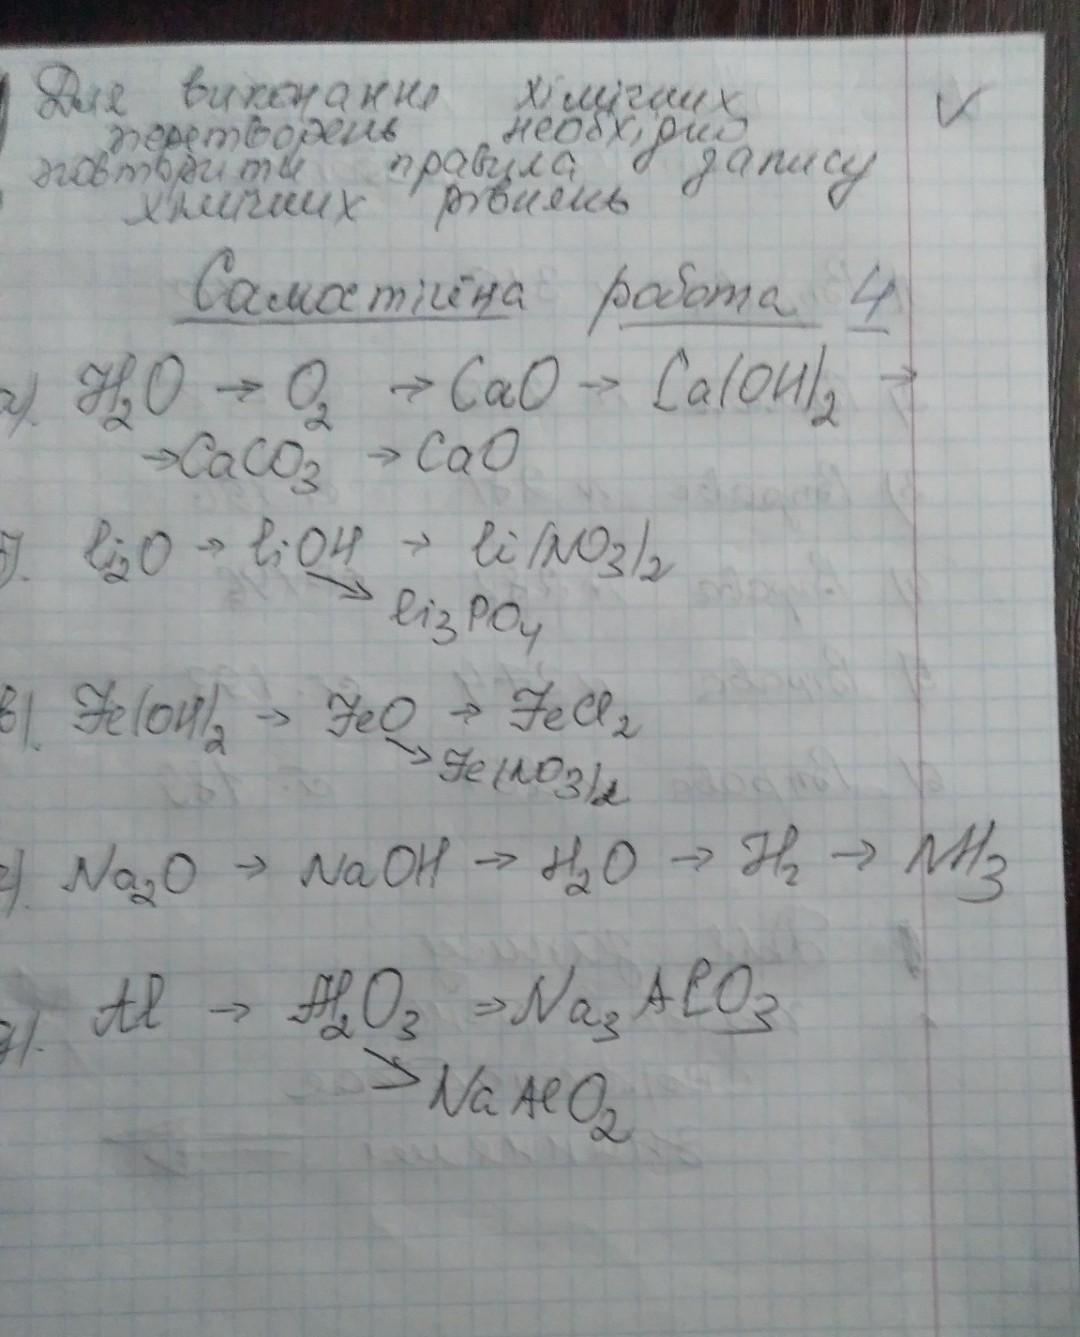 Для виконання хімічних
перетворень необхідно
повторити правила запису
хімічних рівнянь
Самостійна робота 4
а). H₂O → O₂ → CaO → Ca(OH)₂ →
→ CaCO₃ → CaO
б). Li₂O → LiOH → Li(NO₃)₂
↘ Li₃PO₄
в). Fe(OH)₂ → FeO → FeCl₂
↘ Fe(NO₃)₂
г). Na₂O → NaOH → H₂O → H₂ → NH₃
д). Al → Al₂O₃ → Na₃AlO₃
↘ NaAlO₂